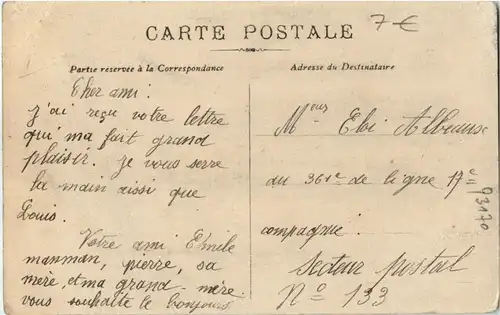 7€
CARTE POSTALE
Partie réservée à la Correspondance
Adresse du Destinataire
Cher ami:
J'ai reçu votre lettre
qui ma fait grand
plaisir. Je vous serre
la main aissi que
Louis.
Votre ami Emile
manman, pierre, sa
mère, et ma grand-mère
vous souhaite le bonjours
Mr Eloi
du 361e de ligne 17
compagnie.
secteur postal
No 133